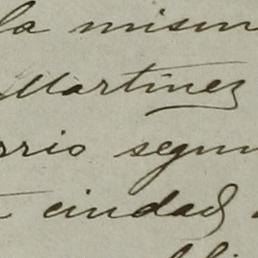 la mism
Martinez
rrio segun
ciudad